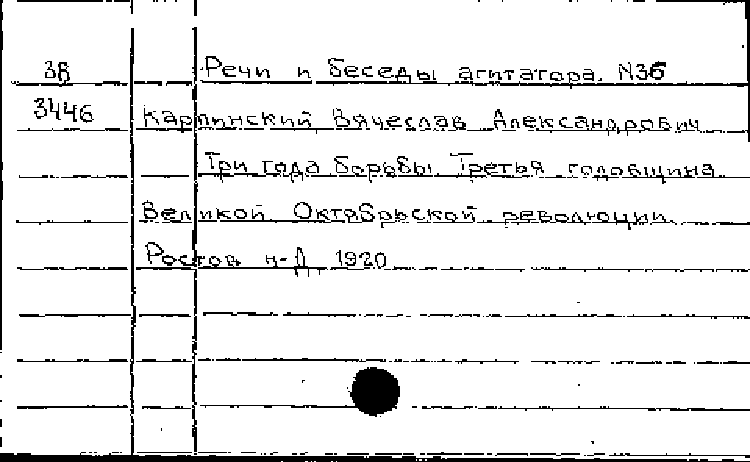 3В Речи и беседы агитатора. N36
3446 Карпинский Вячеслав Александрович
Три года борьбы. Третья годовщина
Великой Октябрьской революции.
Ростов н-Д, 1920